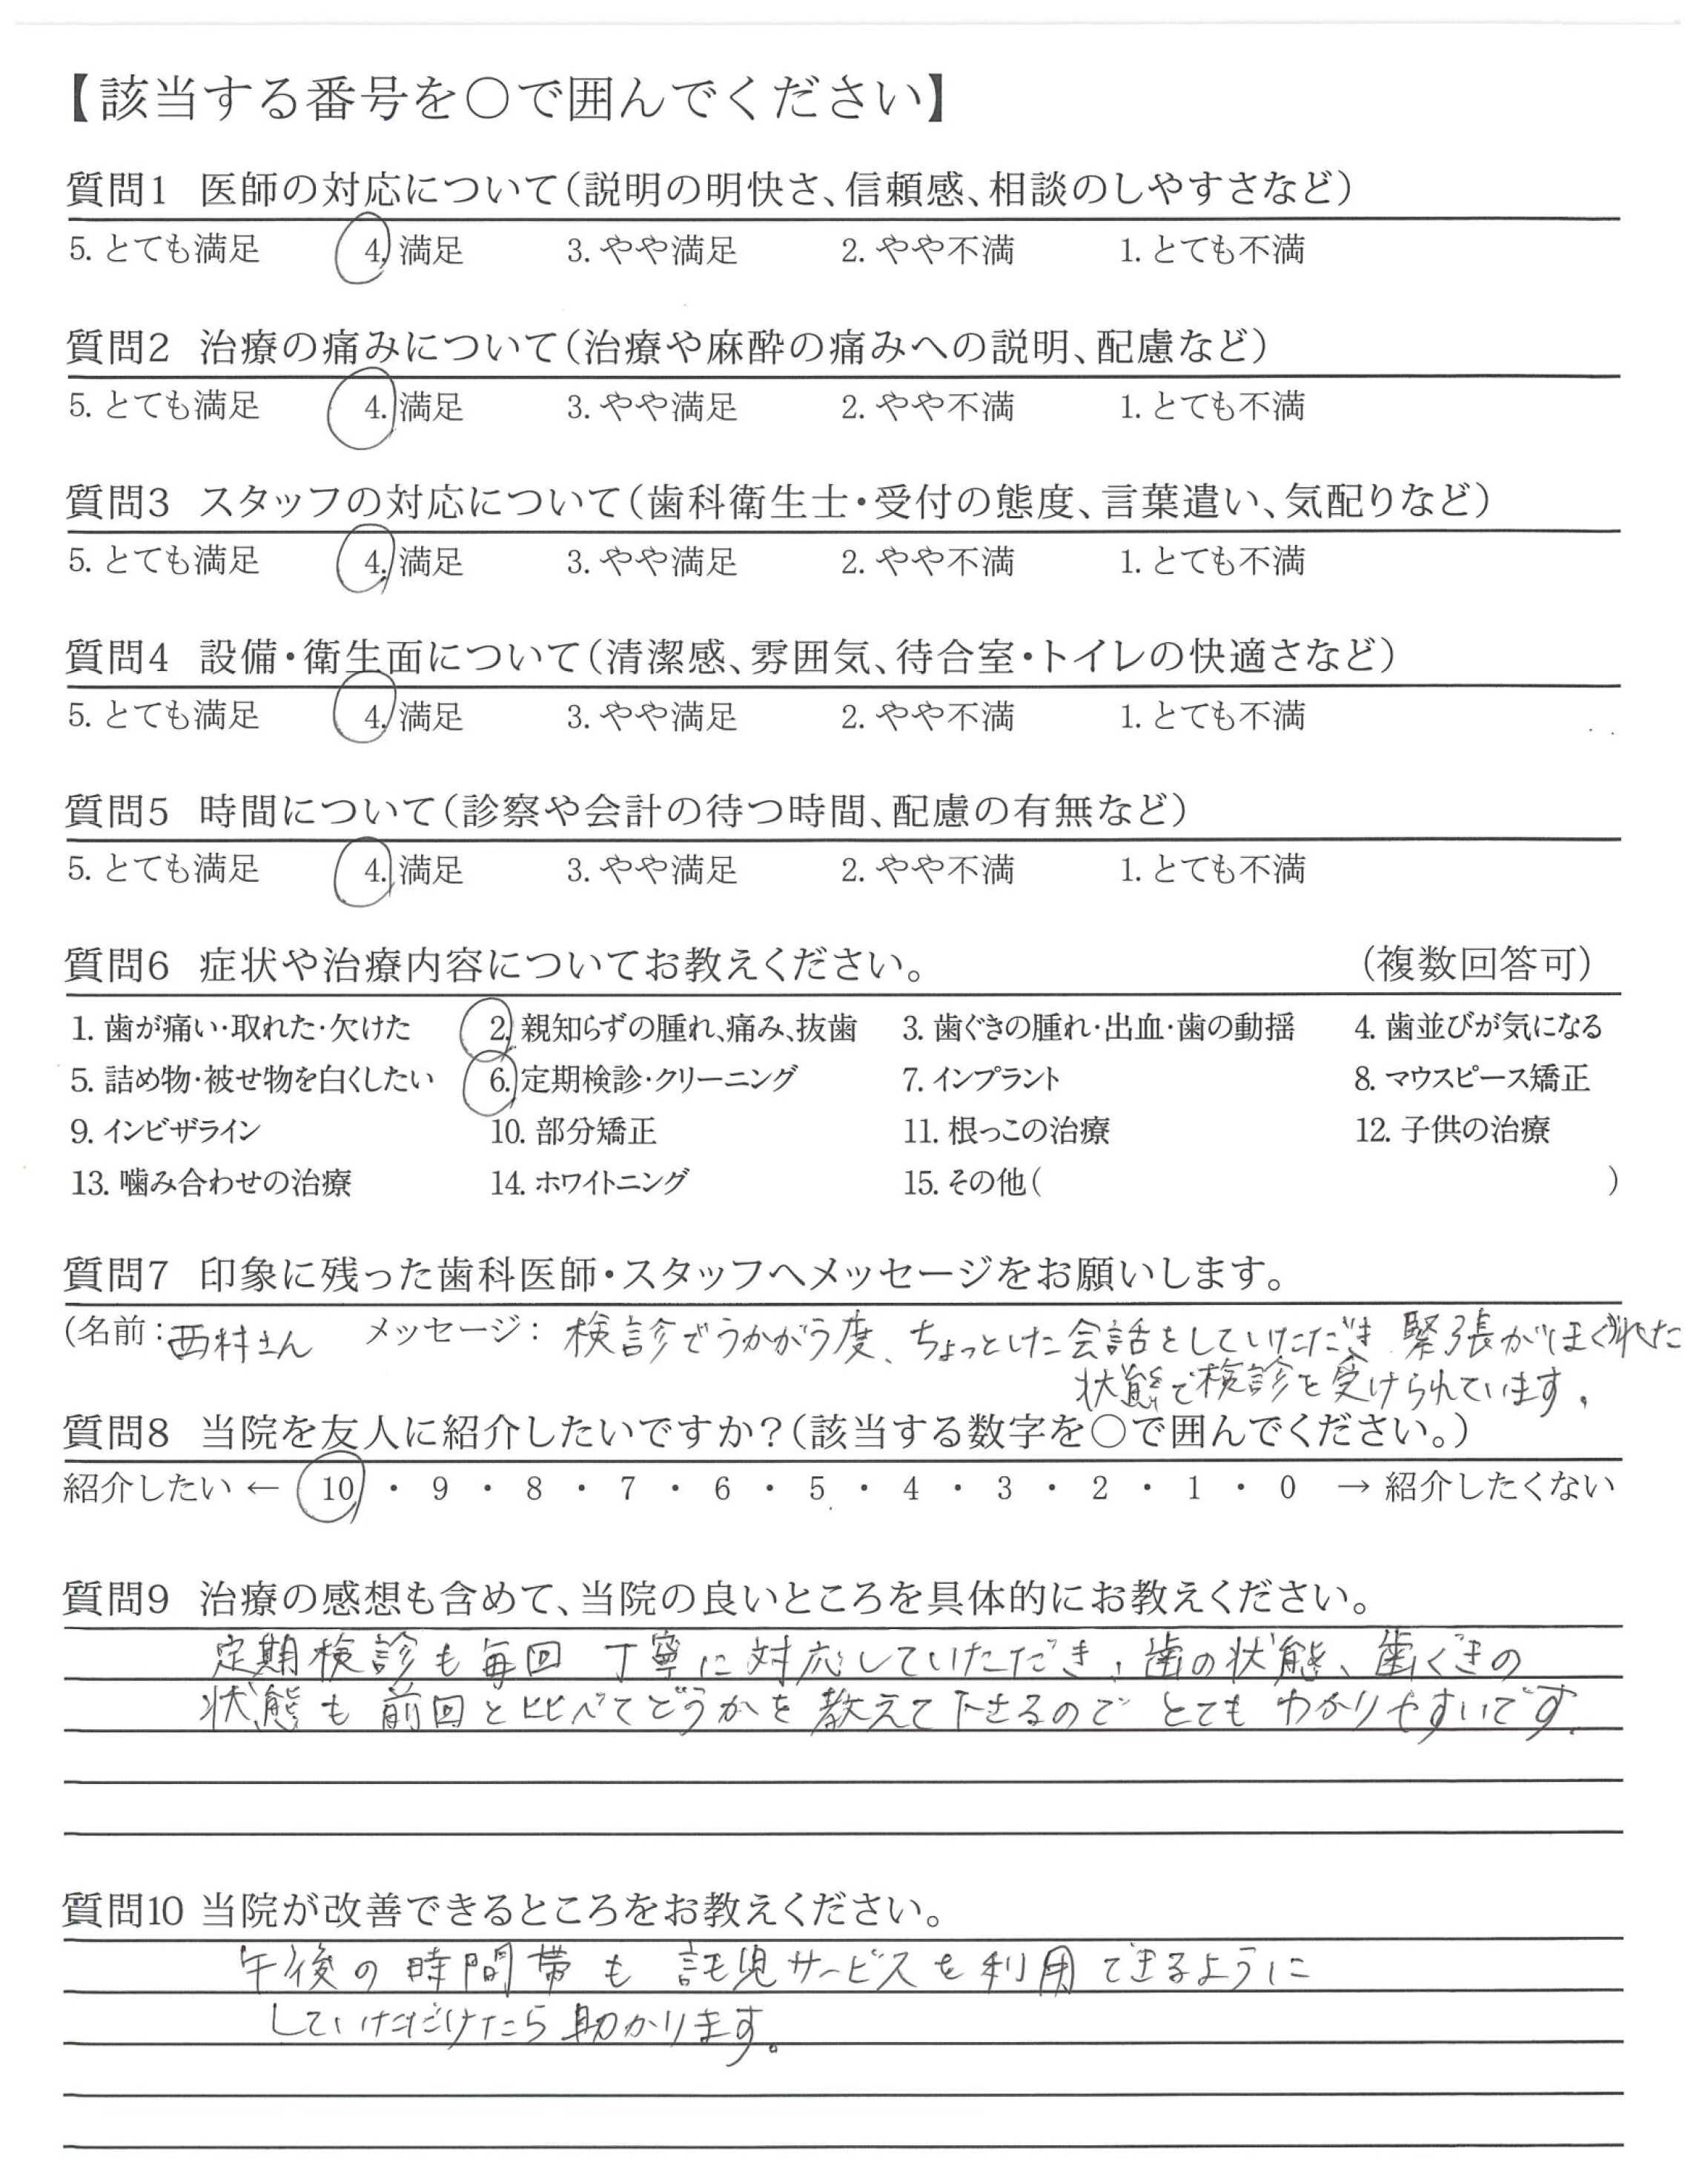 【該当する番号を〇で囲んでください】
質問1 医師の対応について(説明の明快さ、信頼感、相談のしやすさなど)
5. とても満足 4. 満足 3. やや満足 2. やや不満 1. とても不満
質問2 治療の痛みについて(治療や麻酔の痛みへの説明、配慮など)
5. とても満足 4. 満足 3. やや満足 2. やや不満 1. とても不満
質問3 スタッフの対応について(歯科衛生士・受付の態度、言葉遣い、気配りなど)
5. とても満足 4. 満足 3. やや満足 2. やや不満 1. とても不満
質問4 設備・衛生面について(清潔感、雰囲気、待合室・トイレの快適さなど)
5. とても満足 4. 満足 3. やや満足 2. やや不満 1. とても不満
質問5 時間について(診察や会計の待つ時間、配慮の有無など)
5. とても満足 4. 満足 3. やや満足 2. やや不満 1. とても不満
質問6 症状や治療内容についてお教えください。 (複数回答可)
1. 歯が痛い・取れた・欠けた 2. 親知らずの腫れ、痛み、抜歯 3. 歯ぐきの腫れ・出血・歯の動揺 4. 歯並びが気になる
5. 詰め物・被せ物を白くしたい 6. 定期検診・クリーニング 7. インプラント 8. マウスピース矯正
9. インビザライン 10. 部分矯正 11. 根っこの治療 12. 子供の治療
13. 噛み合わせの治療 14. ホワイトニング 15. その他( )
質問7 印象に残った歯科医師・スタッフへメッセージをお願いします。
(名前：西村さん メッセージ：検診でうかがう度、ちょっとした会話をしていただき 緊張がほぐれた
状態で検診を受けられています。
質問8 当院を友人に紹介したいですか？(該当する数字を〇で囲んでください。)
紹介したい ← 10 ・ 9 ・ 8 ・ 7 ・ 6 ・ 5 ・ 4 ・ 3 ・ 2 ・ 1 ・ 0 → 紹介したくない
質問9 治療の感想も含めて、当院の良いところを具体的にお教えください。
定期検診も毎回 丁寧に対応していただき、歯の状態、歯ぐきの
状態も前回と比べてどうかを教えて下さるので とても わかりやすいです。
質問10 当院が改善できるところをお教えください。
午後の時間帯も 託児サービスを利用できるように
していただけたら助かります。